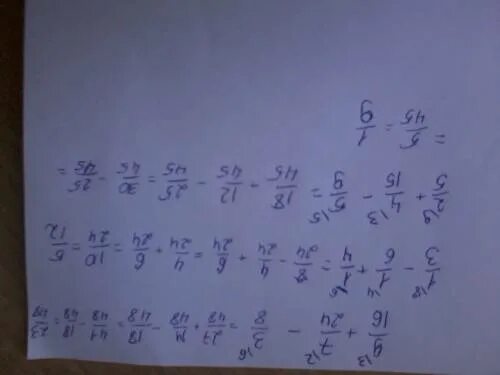 9\3/16 + 7\2/24 - 3\6/8 = 27/48 + 14/48 - 18/48 = 41/48 - 18/48 = 23/48
1\8/3 - 1\4/6 + 1\6/4 = 8/24 - 4/24 + 6/24 = 4/24 + 6/24 = 10/24 = 5/12
2\9/5 + 4\3/15 - 5\5/9 = 18/45 + 12/45 - 25/45 = 30/45 - 25/45 =
= 5/45 = 1/9